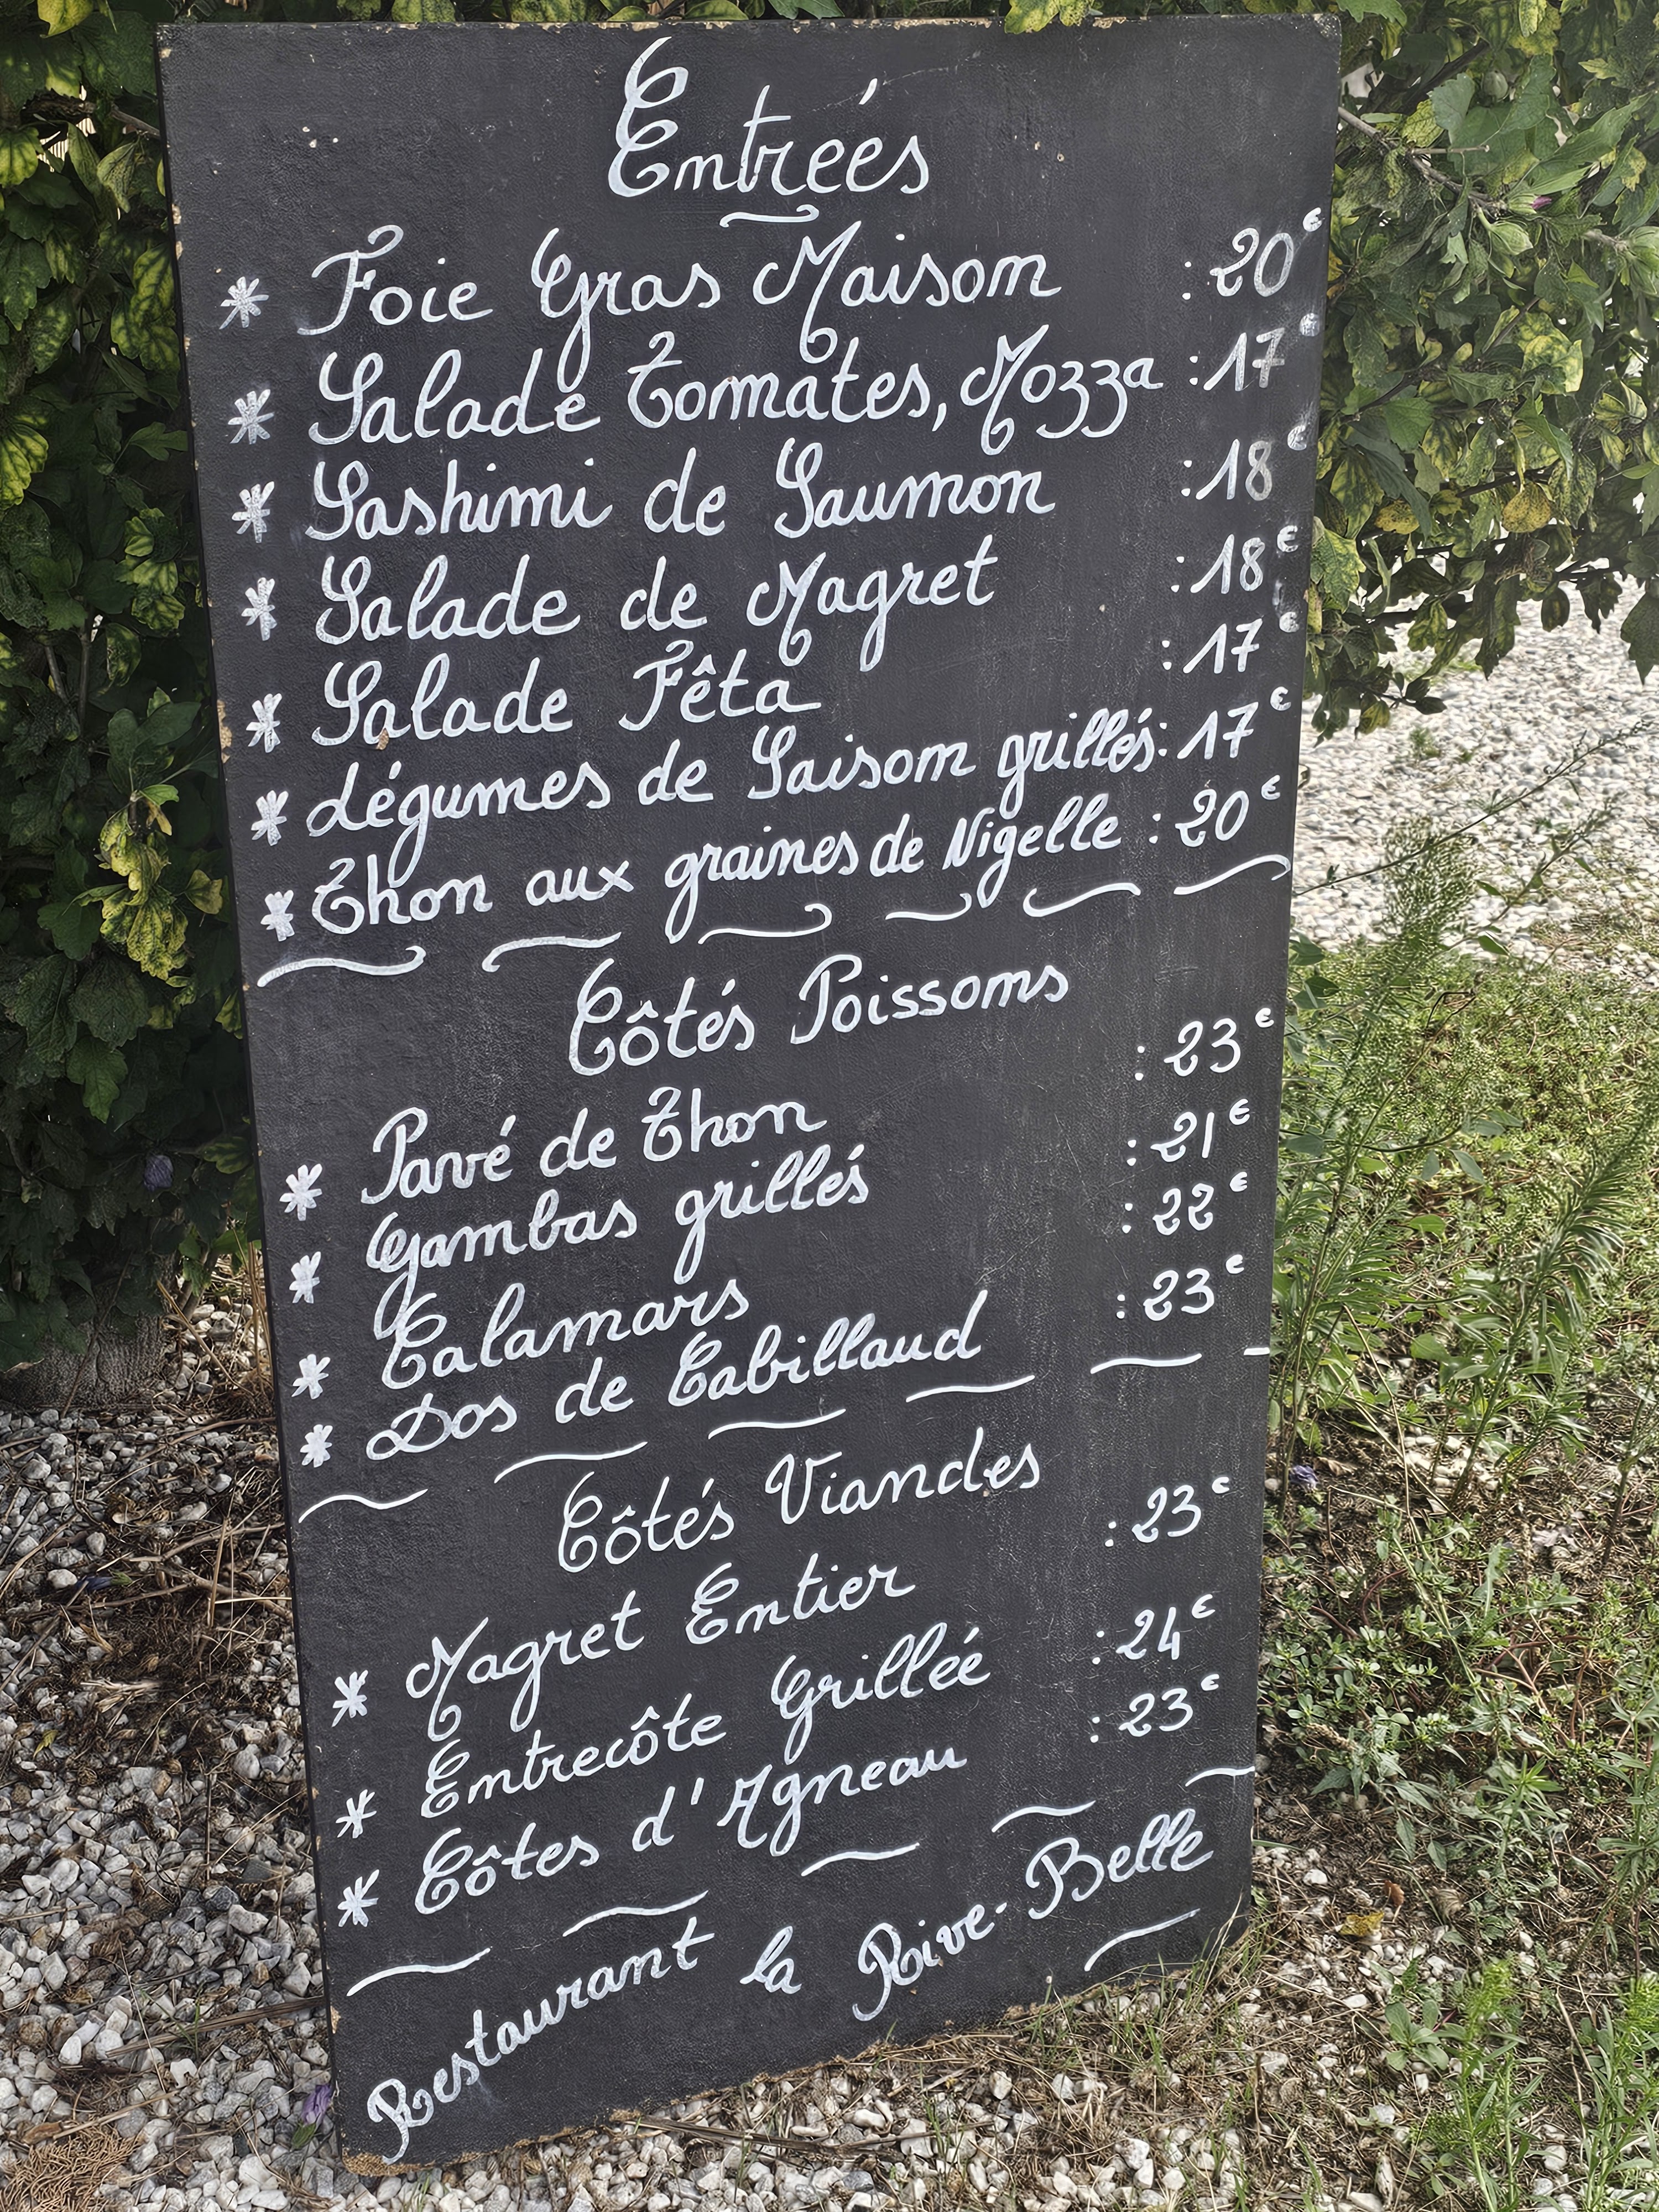 Entrées
* Foie Gras Maison : 20€
* Salade Tomates, Mozza : 17€
* Sashimi de Saumon : 18€
* Salade de Magret : 18€
* Salade Fêta : 17€
* légumes de Saison grillés : 17€
* Thon aux graines de Nigelle : 20€
Côtés Poissons
* Pavé de Thon : 23€
* Gambas grillés : 21€
* Calamars : 22€
* Dos de Cabillaud : 23€
Côtés Viandes
* Magret Entier : 23€
* Entrecôte Grillée : 24€
* Côtes d'Agneau : 23€
Restaurant la Rive-Belle